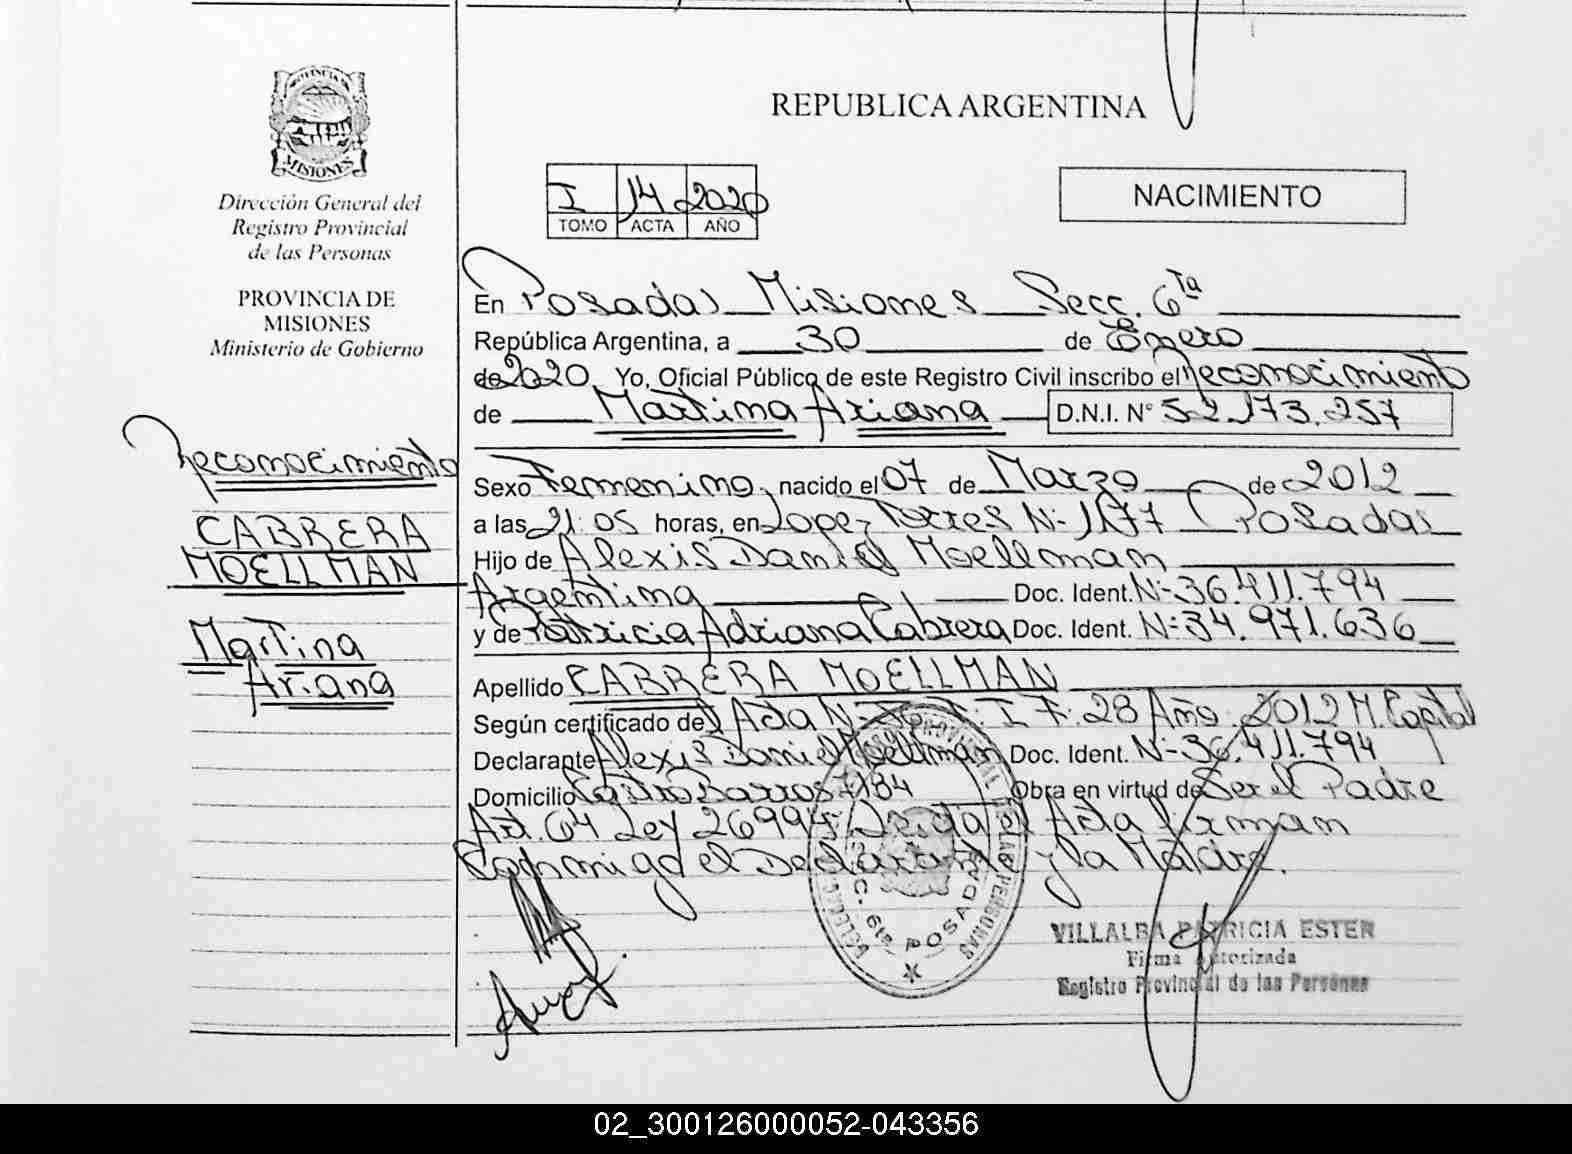 PROVINCIA DE
MISIONES
Dirección General del
Registro Provincial
de las Personas
PROVINCIA DE
MISIONES
Ministerio de Gobierno
Reconocimiento
CABRERA
MOELLMAN
Martina
Ariana
REPUBLICA ARGENTINA
I 14 2020
TOMO ACTA AÑO
NACIMIENTO
En Posadas Misiones Secc. 6ta
República Argentina, a 30 de Enero
de 2020 Yo, Oficial Público de este Registro Civil inscribo el reconocimiento
de Martina Ariana D.N.I. N° 52.173.257
Sexo Femenino, nacido el 07 de Marzo de 2012
a las 21:05 horas, en Lopez Torres N- 1177 Posadas
Hijo de Alexis Daniel Moellman
Argentina Doc. Ident. N- 36.411.794
y de Patricia Adriana Cabrera Doc. Ident. N- 34.971.636
Apellido CABRERA MOELLMAN
Según certificado del Acta T: I F: 28 Año: 2012 M. Capital
Declarante Alexis Daniel Moellman Doc. Ident. N- 36.411.794
Domicilio Castro Barros 7184 Obra en virtud de Ser el Padre
Art. 64 Ley 26994 Leida el Acta Firman
Conmigo el Declarante y la Madre.
SECC. 6ta POSADAS
VILLALBA PATRICIA ESTER
Firma Autorizada
Registro Provincial de las Personas
02_300126000052-043356